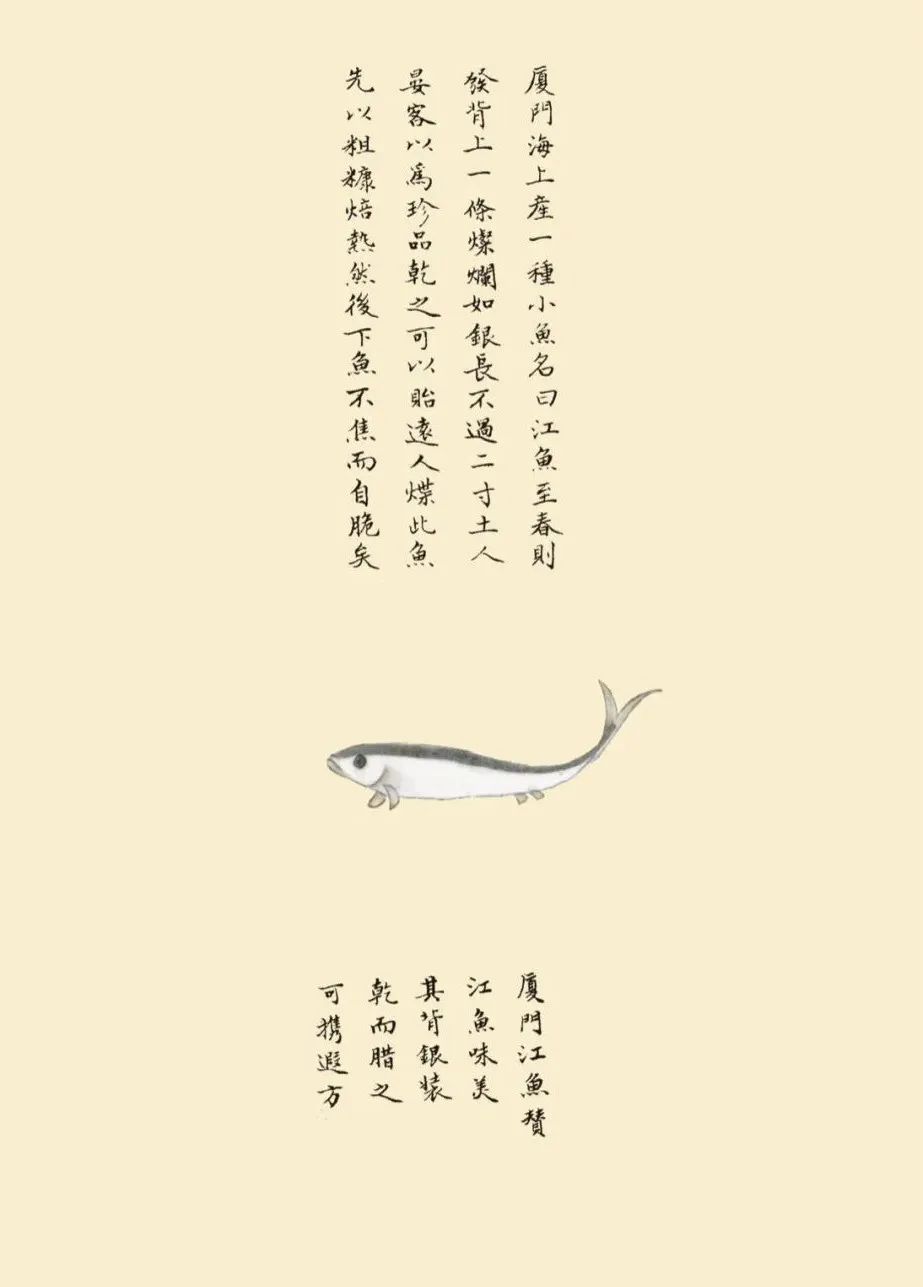 厦門海上産一種小魚名曰江魚至春則
發背上一條燦爛如銀長不過二寸土人
宴客以爲珍品乾之可以貽遠人煠此魚
先以粗糠焙熱然後下魚不焦而自脆矣
厦門江魚贊
江魚味美
其背銀装
乾而腊之
可携遐方